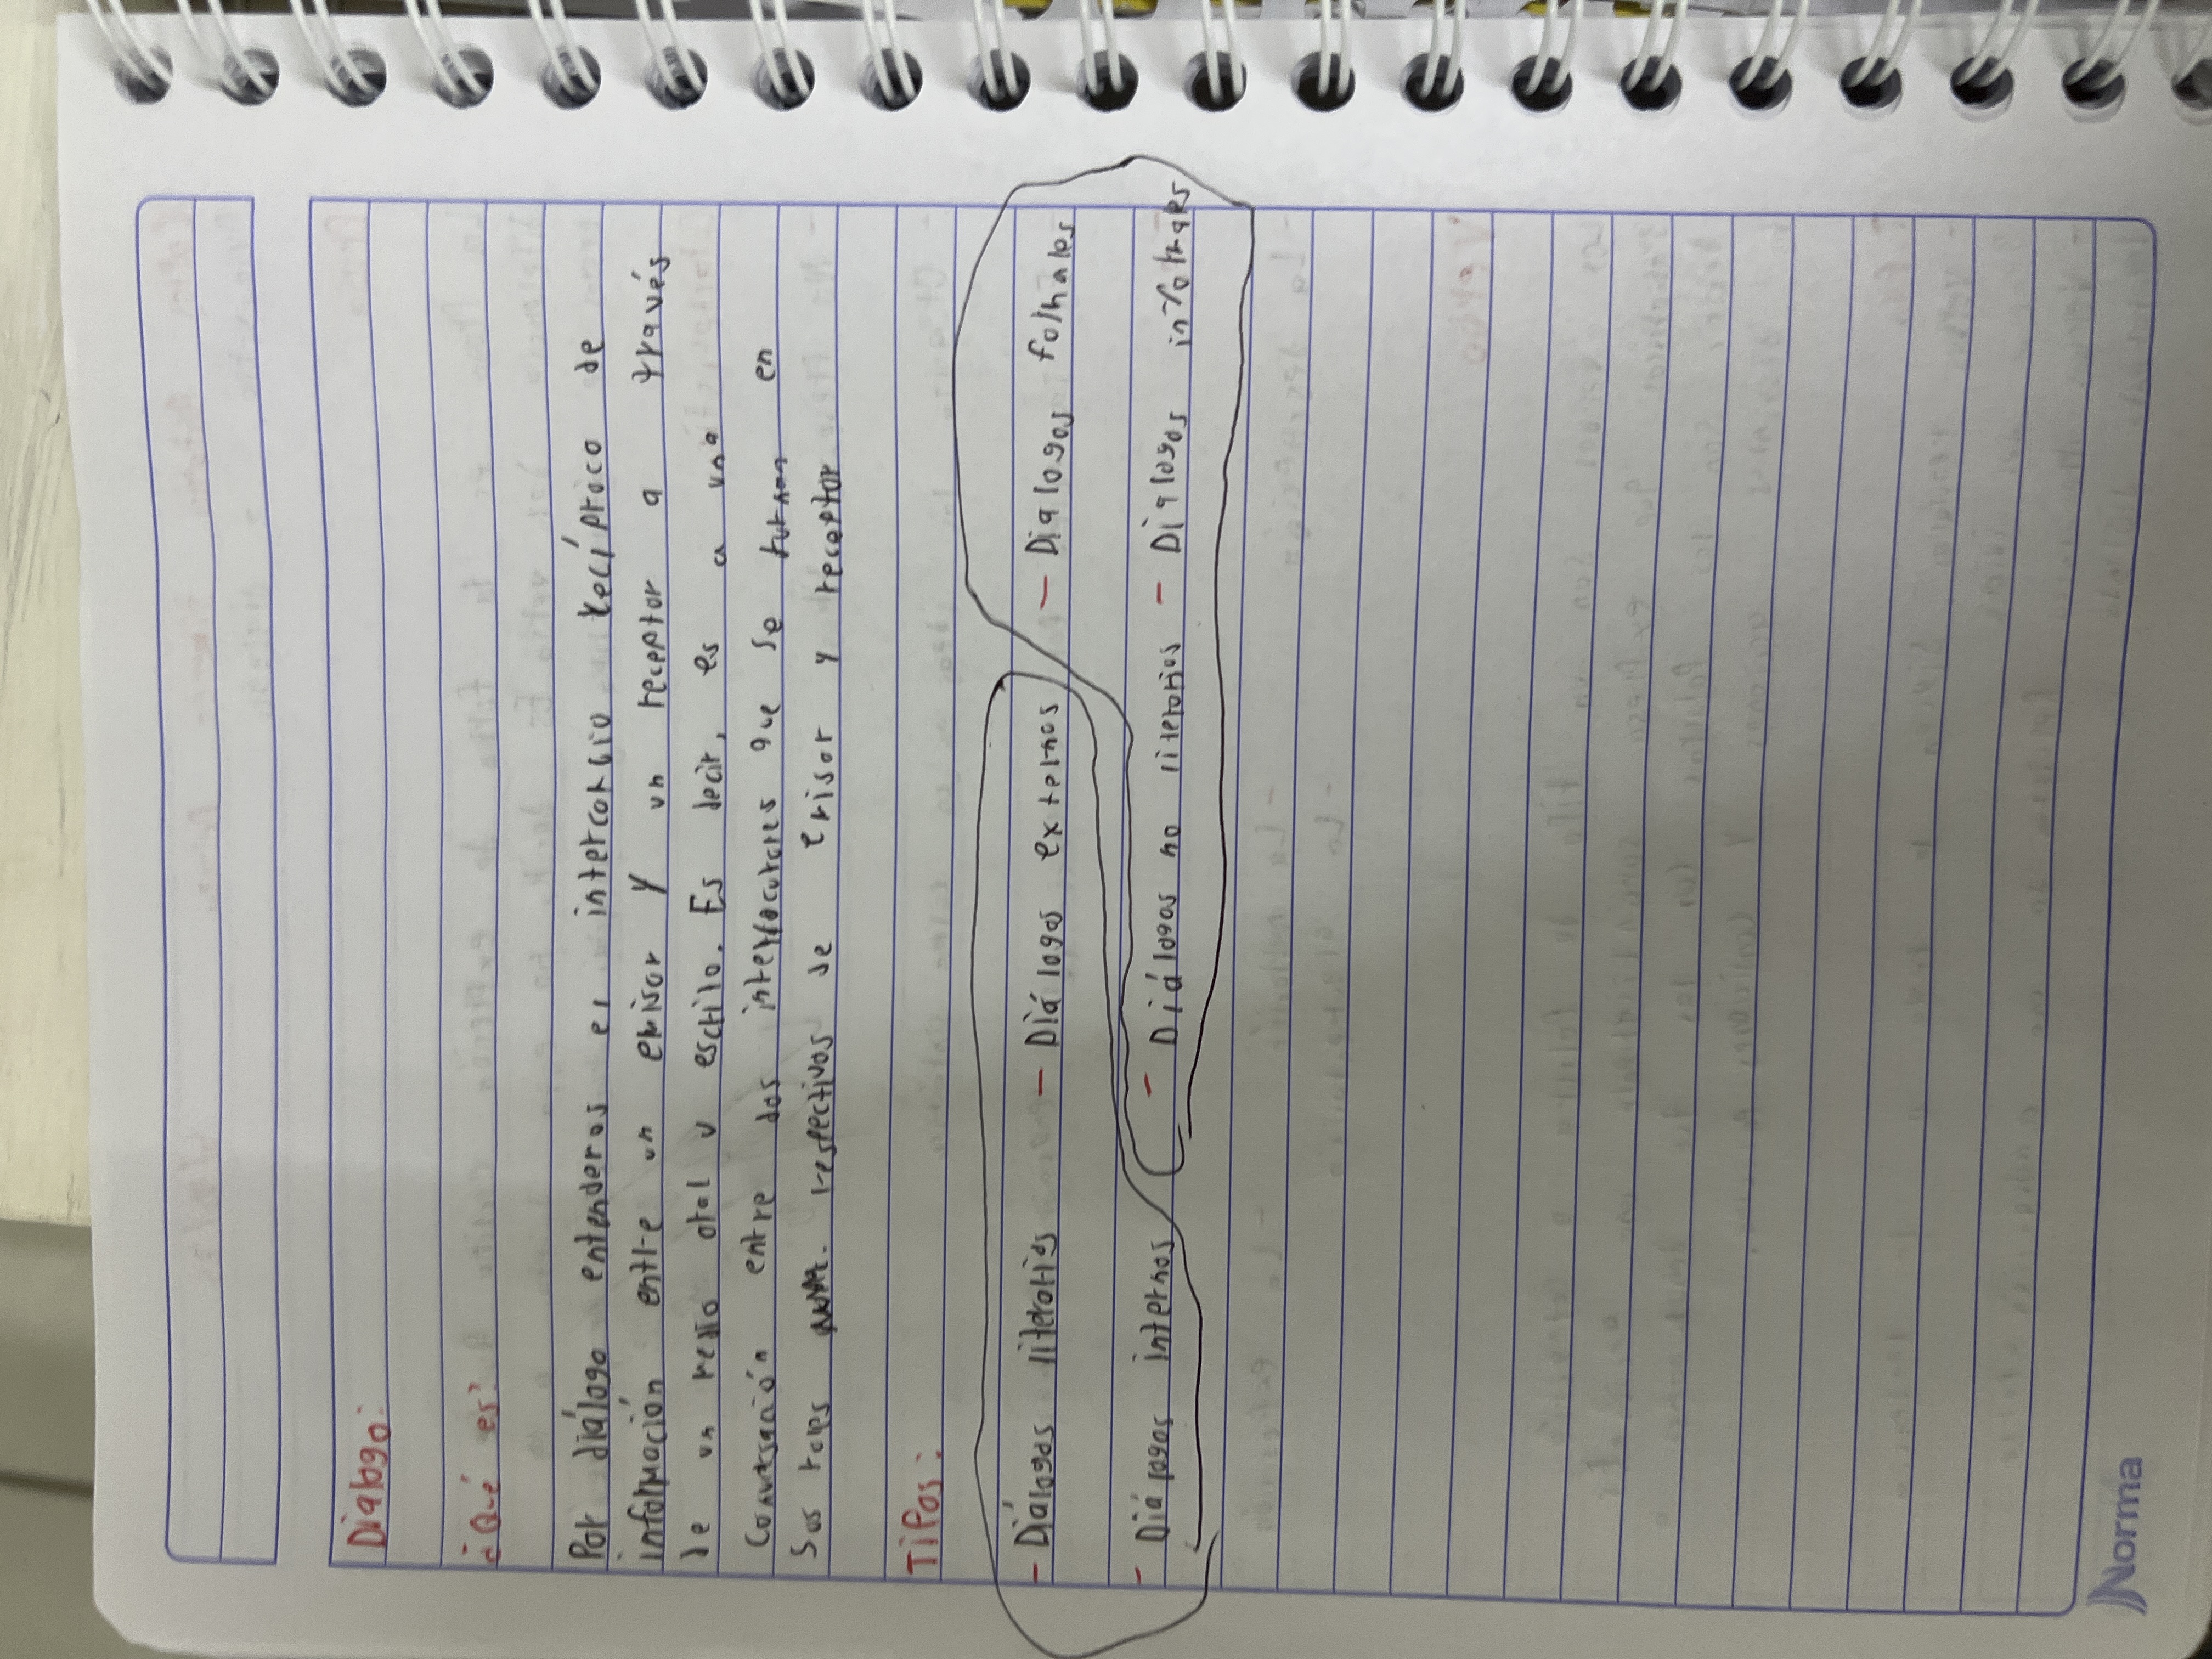 Dialogo:
¿Qué es?
Por diálogo entendemos el intercambio recíproco de
información entre un emisor y un receptor a través
de un medio oral u escrito. Es decir, es a una
Conversación entre dos interlocutores que se turnan en
Sus roles respectivos de emisor y receptor
Tipos:
- Diálogos literarios - Diálogos externos - Dialogos formales
- Diálogos internos - Diálogos no literarios - Dialogos informales
Norma